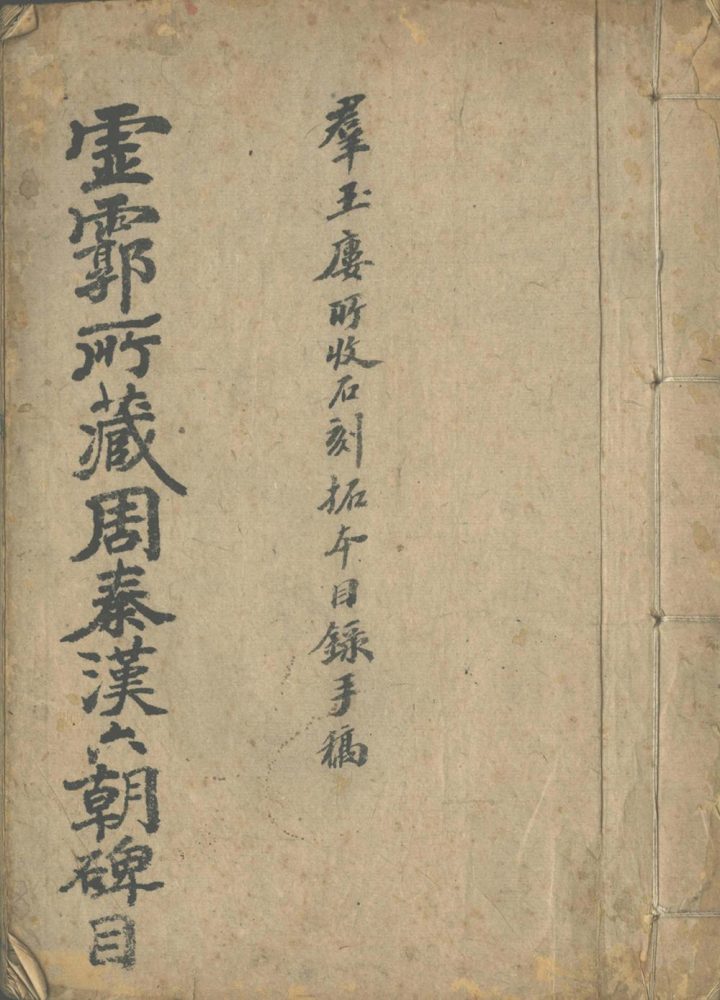 羣玉廔所收石刻拓本目錄手稿
霊霩所藏周秦漢六朝碑目